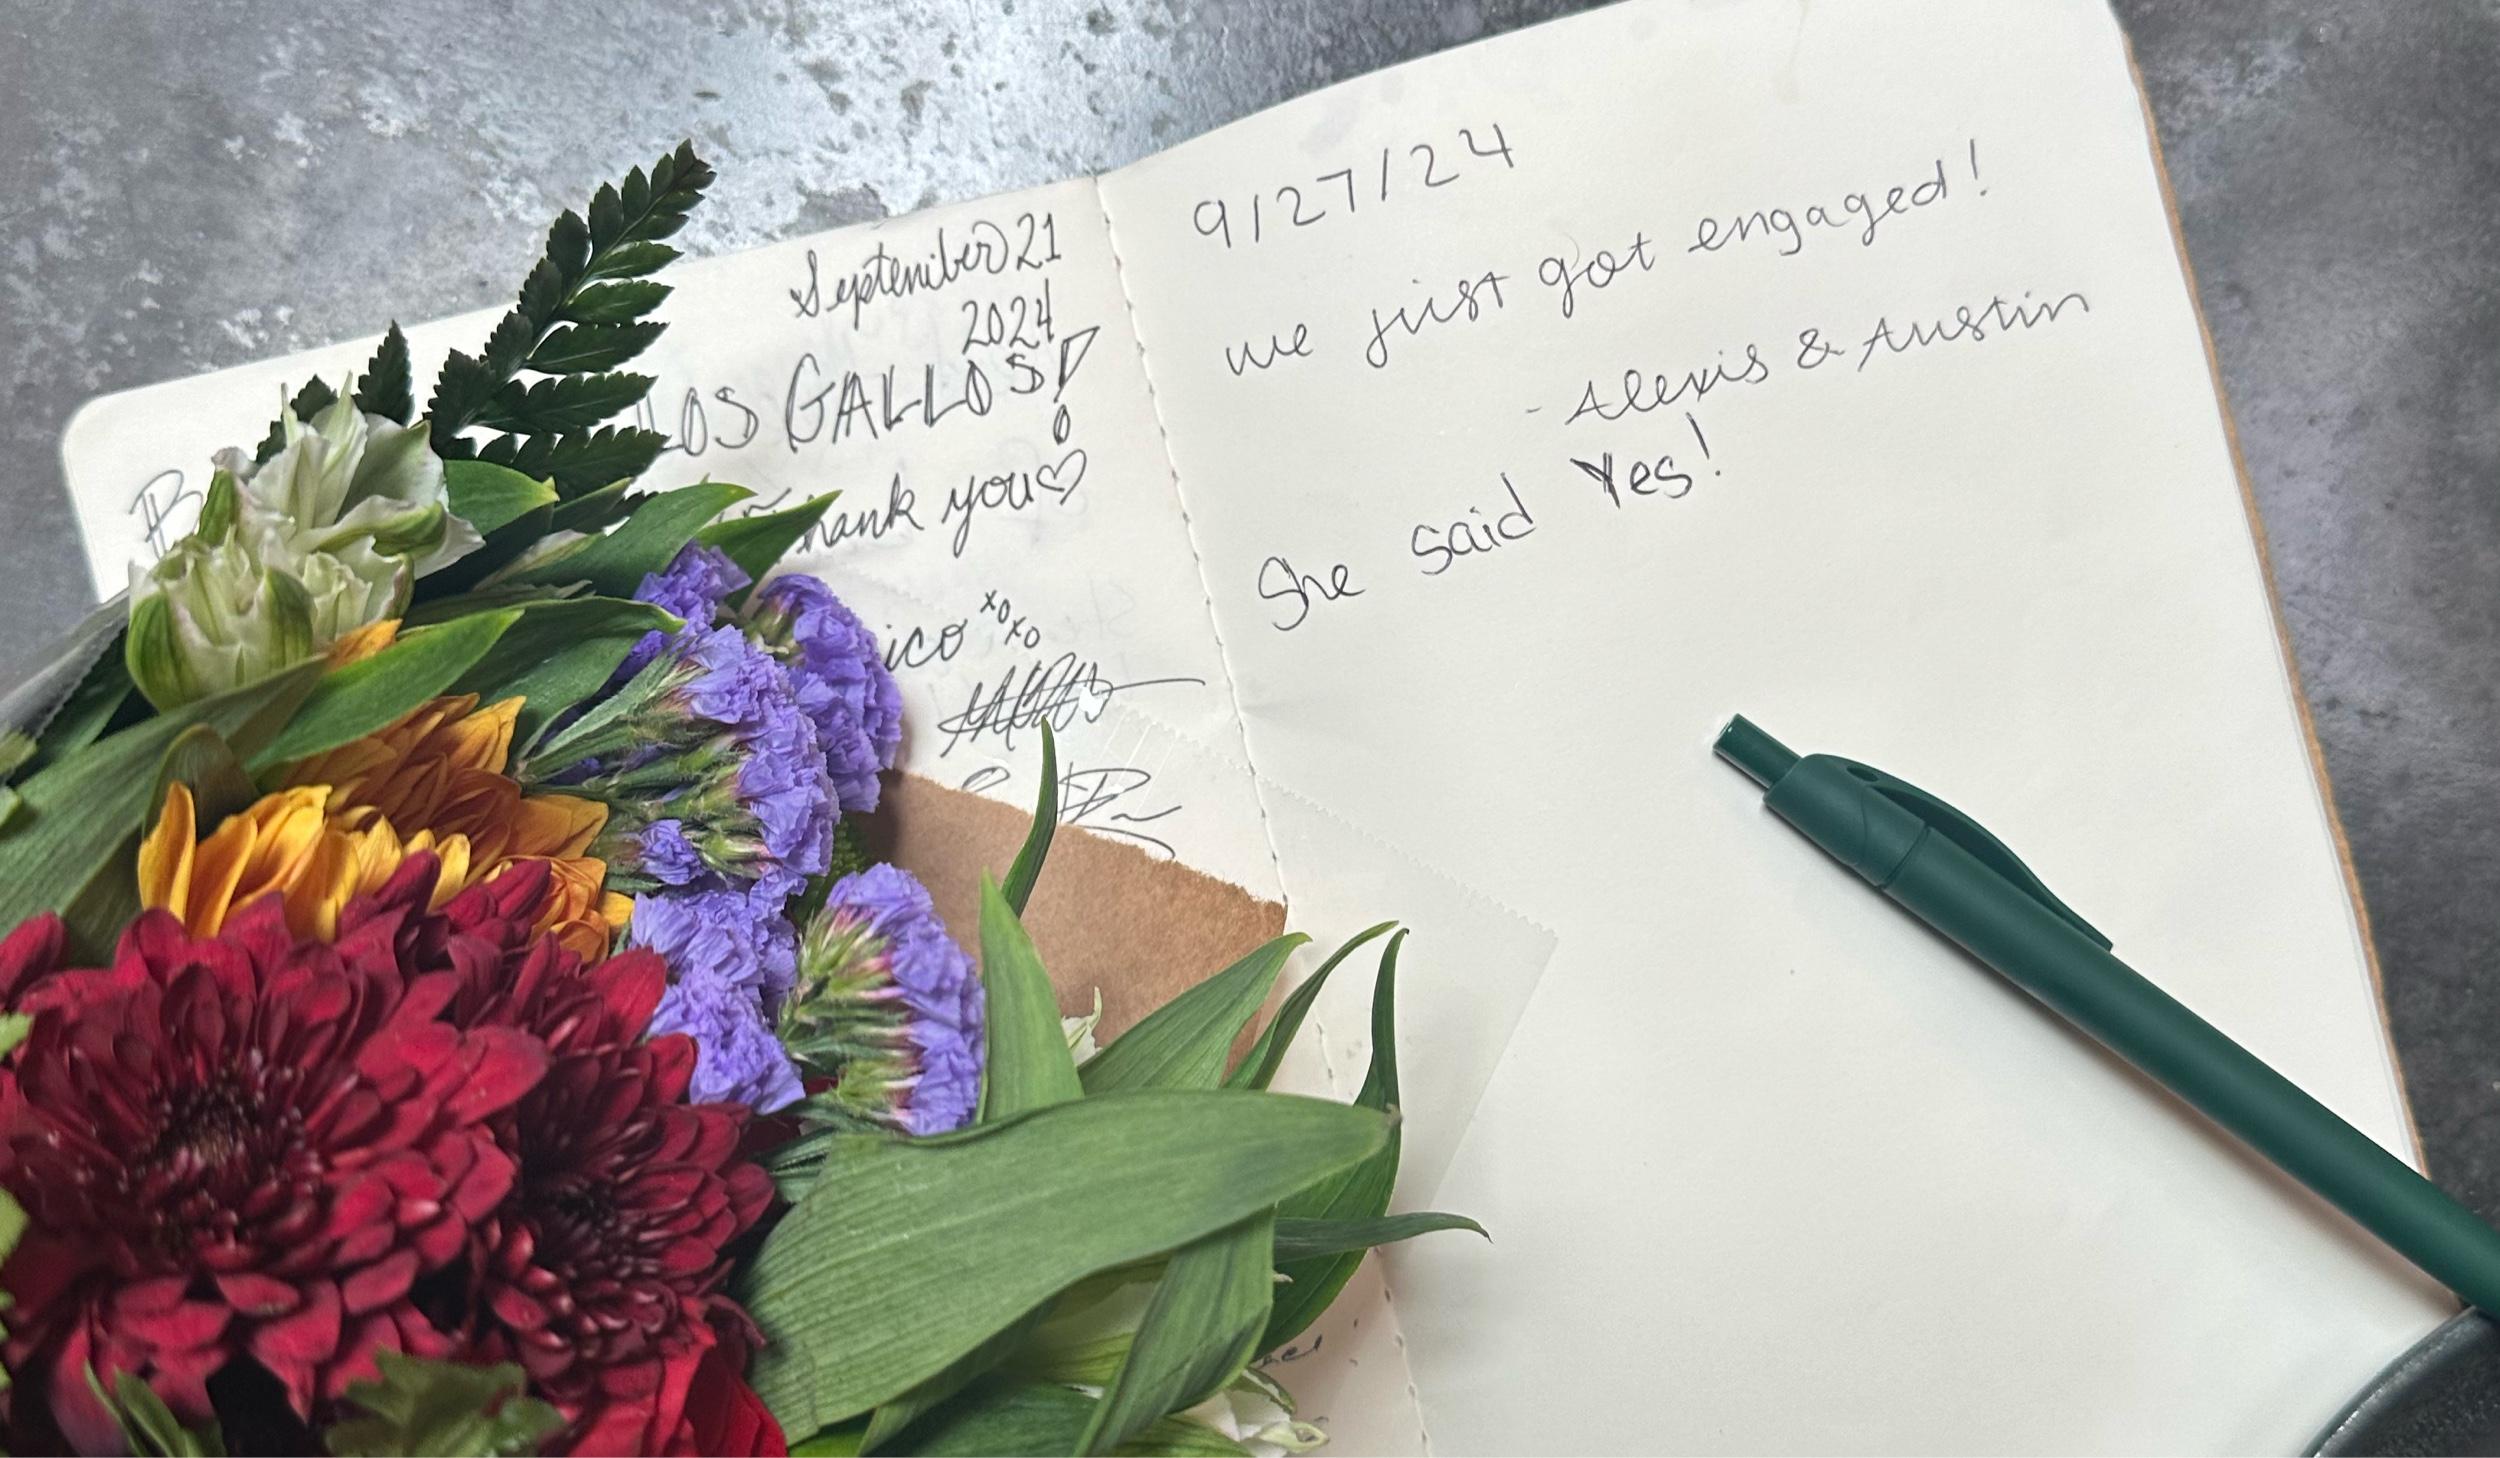 September 21
2024
LOS GALLOS!
thank you♡
xoxo
9/27/24
we just got engaged!
- Alexis & Austin
She said Yes!